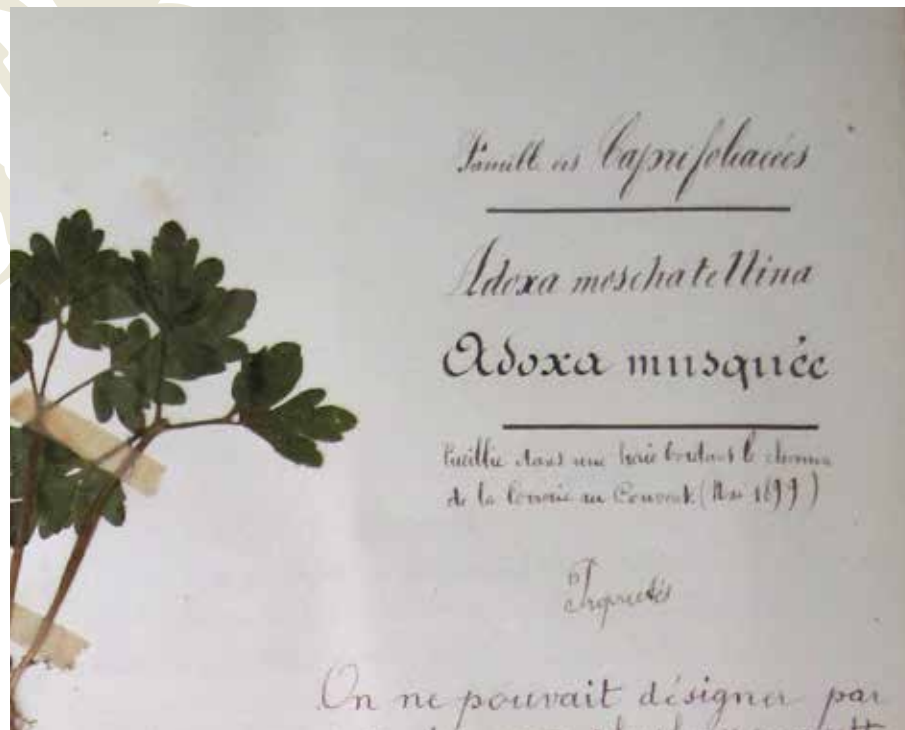 Famille des Caprifoliacées
Adoxa moschatellina
Adoxa musquée
Cueillie dans une haie bordant le chemin
de la au Couvent. (Mai 1899)
Propriétés
On ne pouvait désigner par